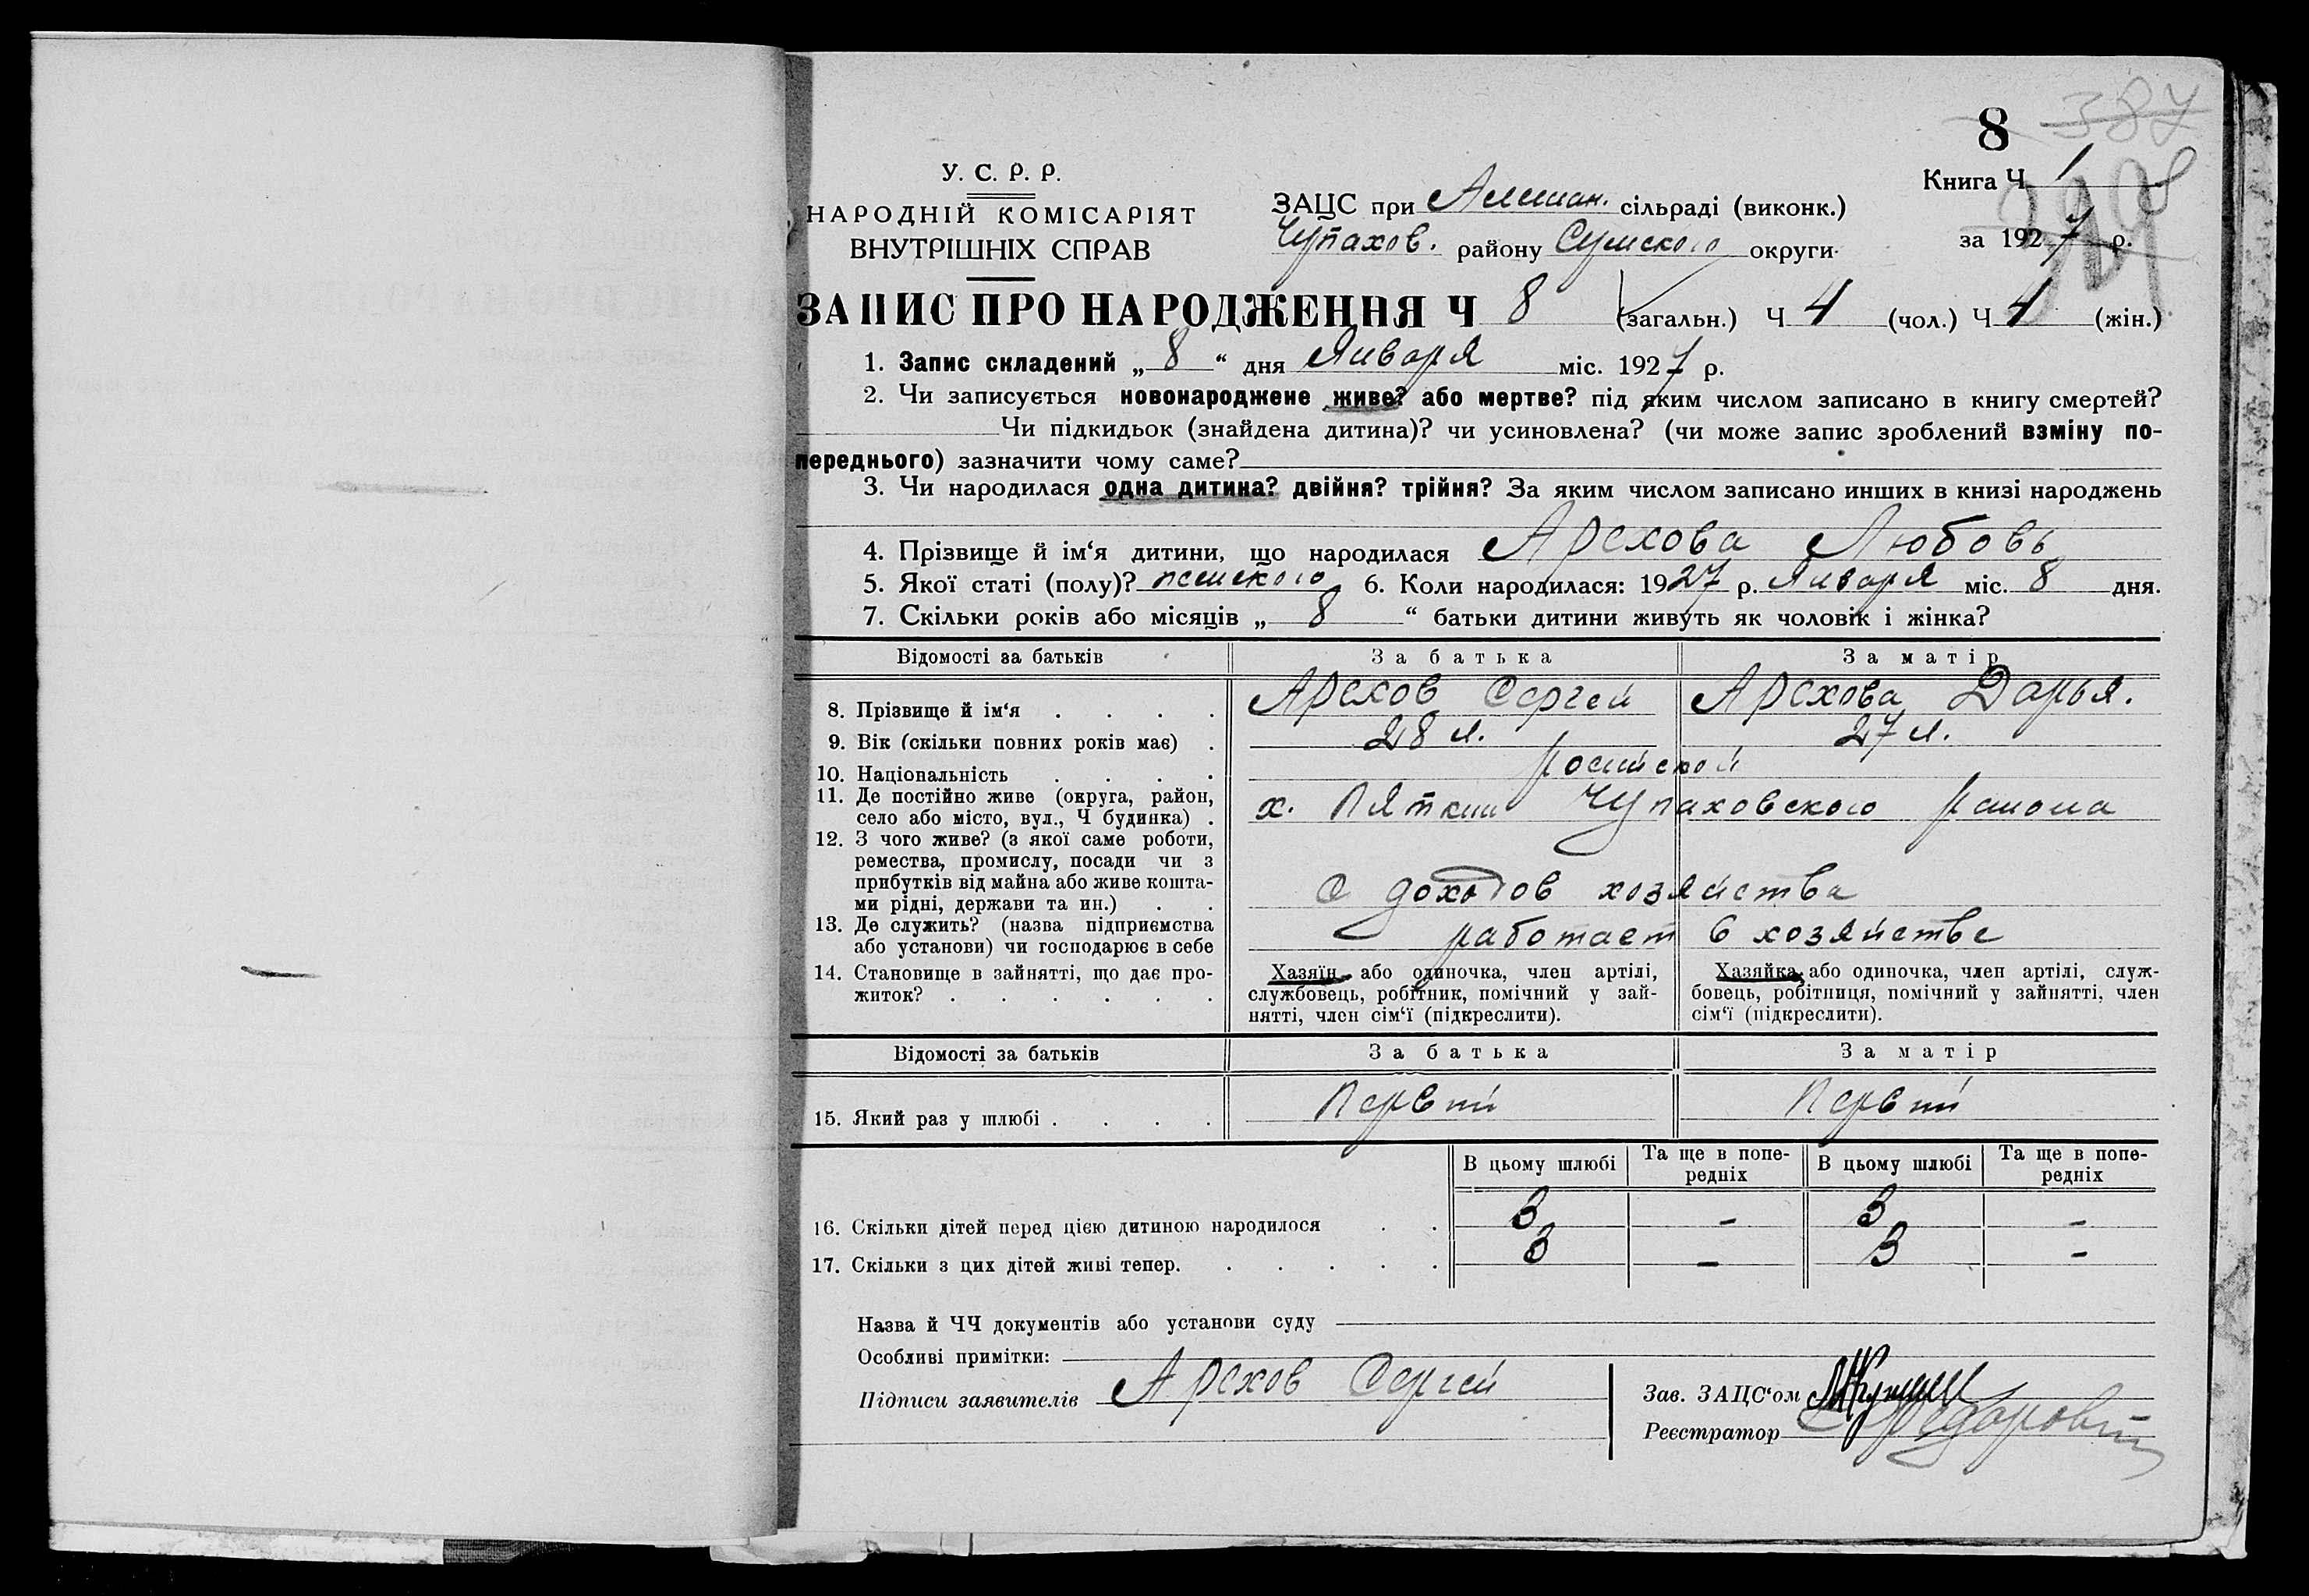 8 387
У. С. Р. Р.
НАРОДНІЙ КОМІСАРІЯТ
ВНУТРІШНІХ СПРАВ
ЗАЦС при Алешан. сільраді (виконк.)
Чупахов. району Сумского округи
Книга Ч 1
за 1927 р.
ЗАПИС ПРО НАРОДЖЕННЯ Ч 8 (загальн.) Ч 4 (чол.) Ч 4 (жін.)
1. Запис складений „ 8 “ дня Января міс. 1927 р.
2. Чи записується новонароджене живе? або мертве? під яким числом записано в книгу смертей?
Чи підкидьок (знайдена дитина)? чи усиновлена? (чи може запис зроблений взміну по-
переднього) зазначити чому саме?
3. Чи народилася одна дитина? двійня? трійня? За яким числом записано инших в книзі народжень
4. Прізвище й ім‘я дитини, що народилася Арехова Любовь
5. Якої статі (полу)? женского 6. Коли народилася: 1927 р. Января міс. 8 дня.
7. Скільки років або місяців „ 8 “ батьки дитини живуть як чоловік і жінка?
Відомості за батьків За батька За матір
8. Прізвище й ім‘я . . . . Арехов Сергей Арехова Дарья.
9. Вік (скільки повних років має) . 28 л. 27 л.
10. Національність . . . . российской
11. Де постійно живе (округа, район,
село або місто, вул., Ч будинка) . х. Пяткин Чупаховского района
12. З чого живе? (з якої саме роботи,
ремества, промислу, посади чи з
прибутків від майна або живе кошта-
ми рідні, держави та ин.) . . С доходов хозяйства
13. Де служить? (назва підприємства
або установи) чи господарює в себе работает в хозяйстве
14. Становище в зайнятті, що дає про-
житок? . . . . . .
Хазяїн або одиночка, член артілі,
службовець, робітник, помічний у зай-
нятті, член сім‘ї (підкреслити).
Хазяйка або одиночка, член артілі, служ-
бовець, робітниця, помічний у зайнятті, член
сім‘ї (підкреслити).
Відомості за батьків За батька За матір
15. Який раз у шлюбі . . . . Первый Первый
В цьому шлюбі Та ще в попе-
редніх В цьому шлюбі Та ще в попе-
редніх
16. Скільки дітей перед цією дитиною народилося . . 3 - 3 -
17. Скільки з цих дітей живі тепер. . . . . . 3 - 3 -
Назва й ЧЧ документів або установи суду
Особливі примітки:
Підписи заявителів Арехов Сергей
Зав. ЗАЦС‘ом
Реєстратор